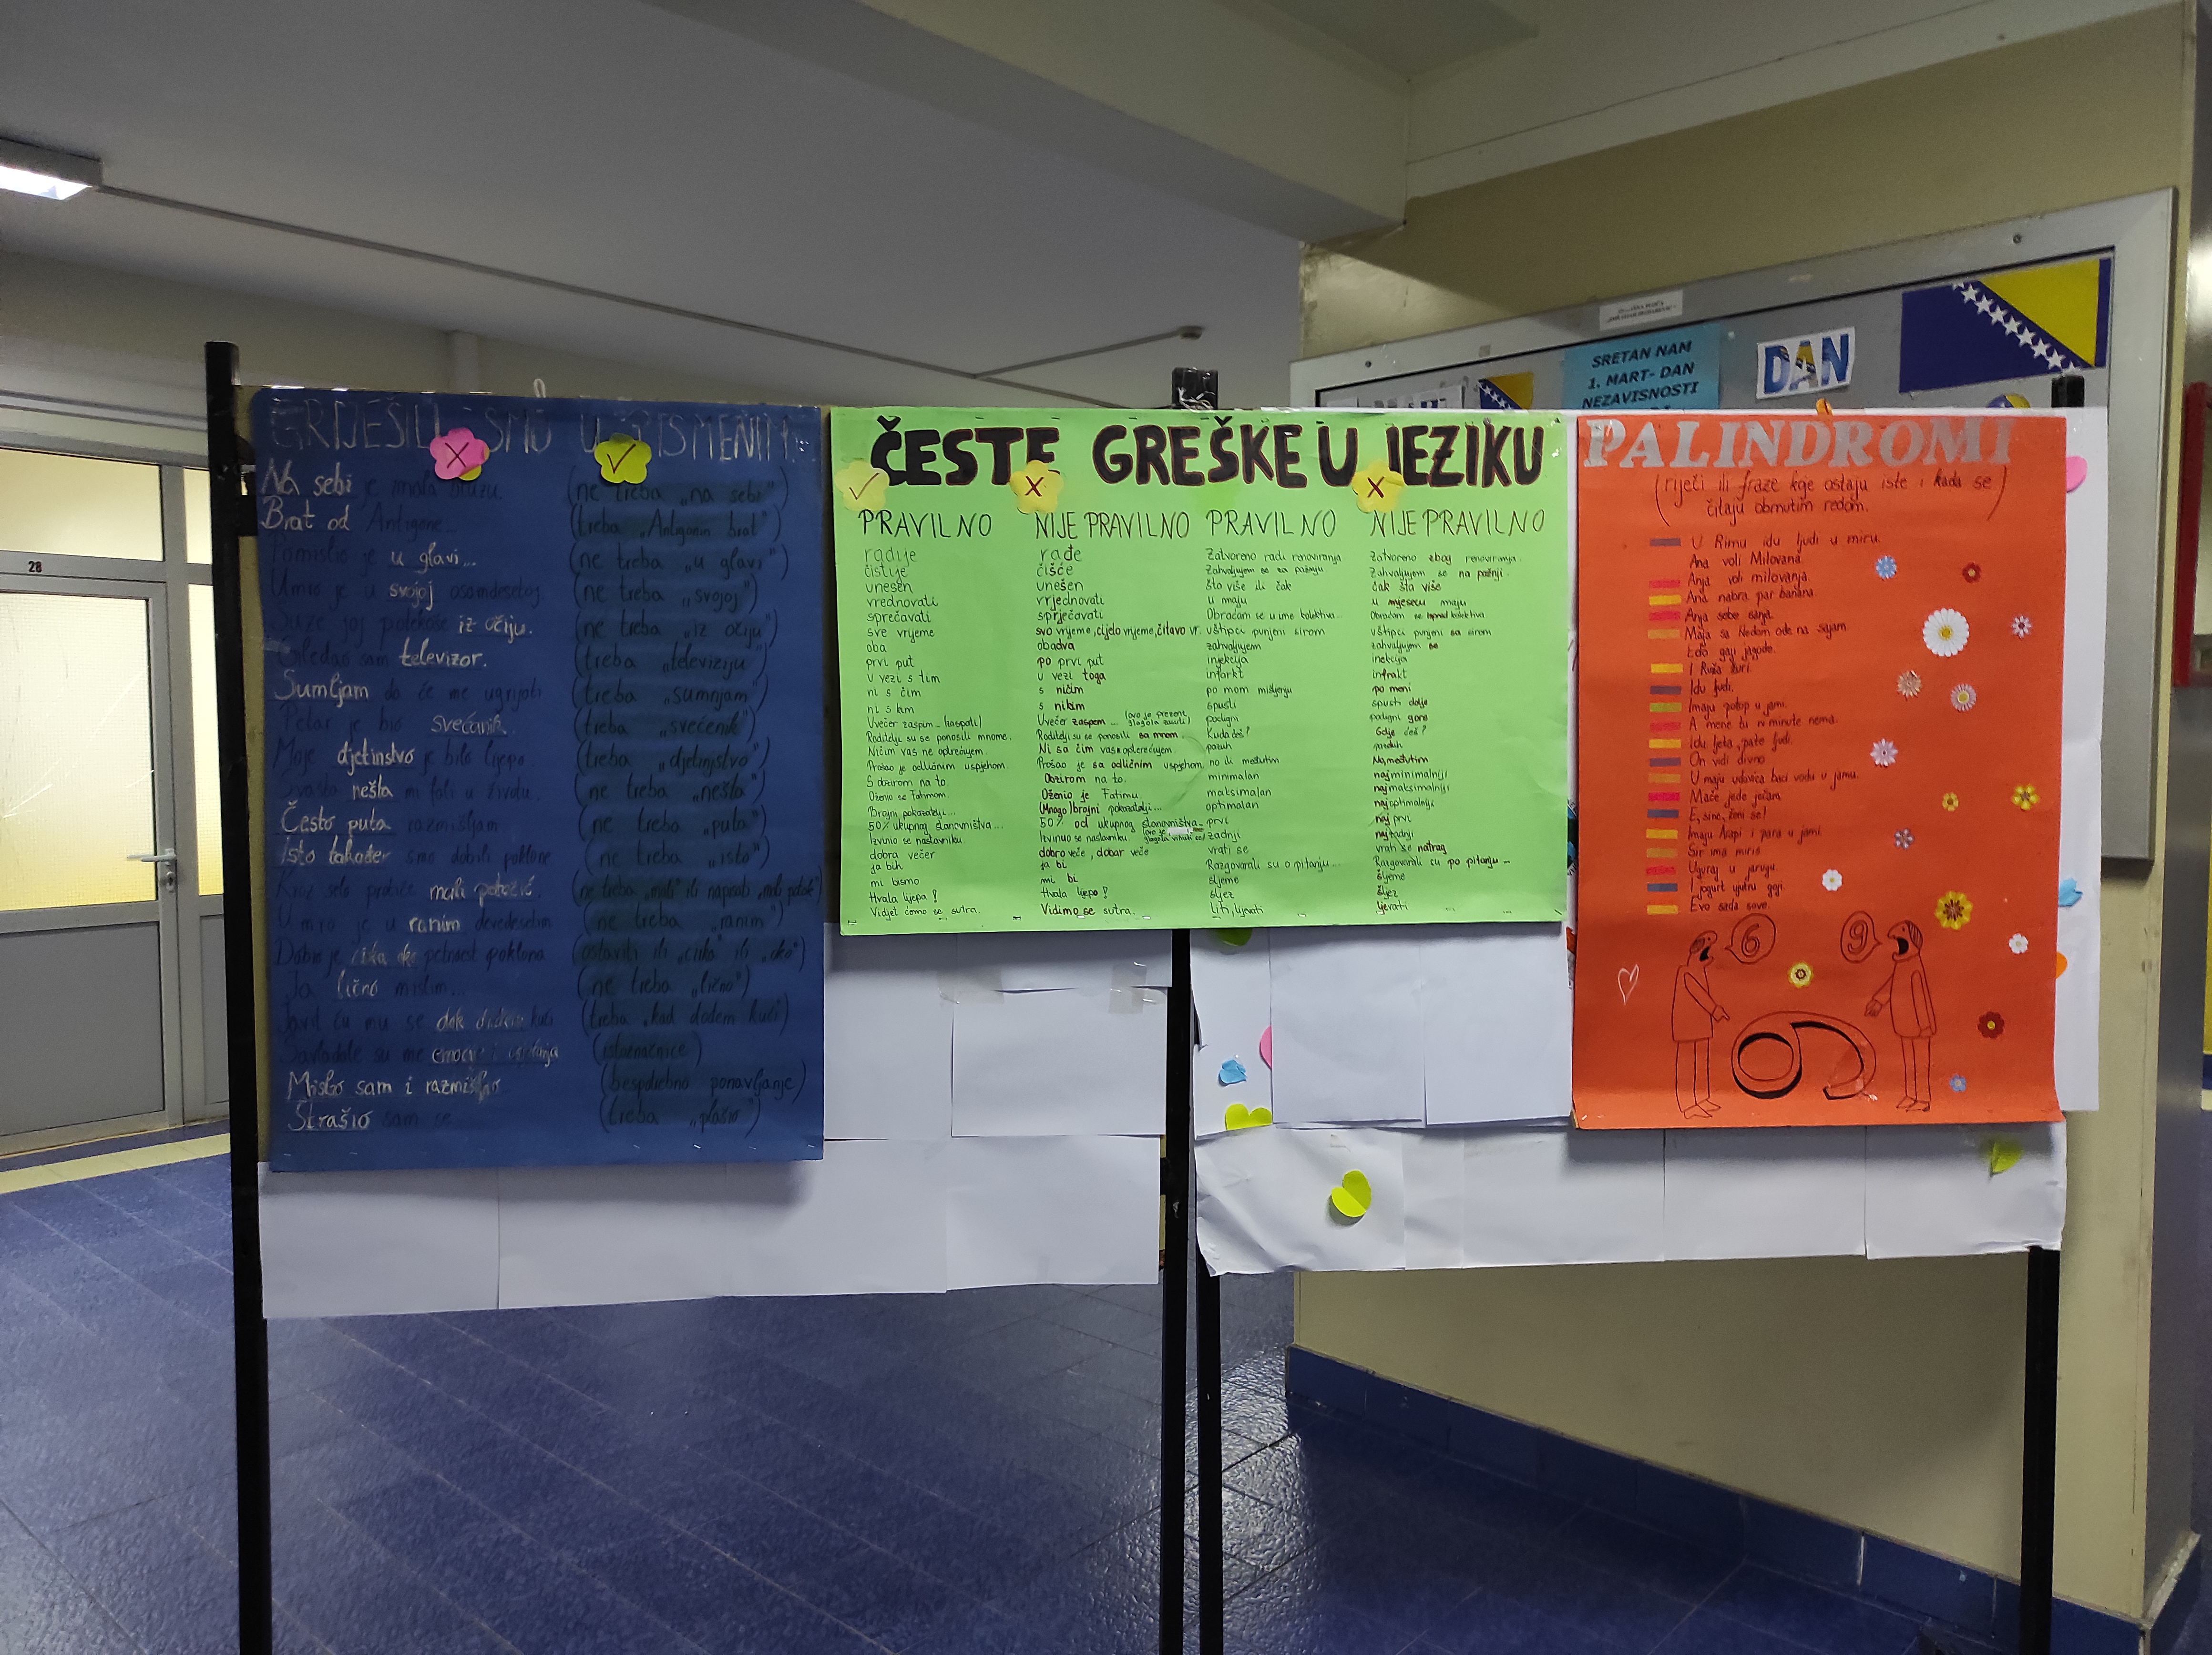 28
SRETAN NAM
1. MART- DAN
NEZAVISNOSTI
DAN
GRIJEŠILI SMO U PISMENIM...
Na sebi je imala bluzu. (ne treba „na sebi")
Brat od Antigone... (treba „Antigonin brat")
Pomislio je u glavi... (ne treba „u glavi")
Umro je u svojoj osamdesetoj. (ne treba „svojoj")
Suze joj potekoše iz očiju. (ne treba „iz očiju")
Gledao sam televizor. (treba „televiziju")
Sumljam da će me ugrijati (treba „sumnjam")
Petar je bio svećanik. (treba „svećenik")
Moje djetinstvo je bilo lijepo (treba „djetinjstvo")
nešta mi fali u životu. (ne treba „nešta")
Često puta razmišljam (ne treba „puta")
Isto također smo dobili poklone (ne treba „isto")
Kroz selo protiče mali potočić. (ne treba „mali" ili napisati „mali potok")
Umro je u ranim devedesetim (ne treba „ranim")
Dobio je cirka oko petnaest poklona (ostaviti ili „cirka" ili „oko")
Ja lično mislim... (ne treba „lično")
Javit ću mu se dok dođem kući (treba „kad dođem kući")
Savladale su me emocije i (istoznačnice)
Mislio sam i razmišljao (bespotrebno ponavljanje)
Strašio sam se (treba „plašio")
ČESTE GREŠKE U JEZIKU
PRAVILNO NIJE PRAVILNO PRAVILNO NIJE PRAVILNO
radije rađe Zatvoreno radi renoviranja Zatvoreno zbog renoviranja.
čistije čišće Zahvaljujem se za pažnju Zahvaljujem se na pažnji.
unesen unešen što više ili čak čak šta više
vrednovati vrjednovati u maju u mjesecu maju
sprečavati sprječavati Obraćam se u ime kolektiva... Obraćam se ispred kolektiva
sve vrijeme svo vrijeme, cijelo vrijeme, čitavo vr. uštipci punjeni sirom uštipci punjeni sa sirom
oba obadva zahvaljujem zahvaljujem se
prvi put po prvi put injekcija inekcija
u vezi s tim u vezi toga infarkt infrakt
ni s čim s ničim po mom mišljenju po meni
ni s kim s nikim spusti spusti dolje
Uvečer zaspim... (zaspati) Uvečer zaspem... (ovo je prezent glagola zasuti) podigni podigni gore
Roditelji su se ponosili mnome. Roditelji su se ponosili sa mnom. Kuda ćeš? Gdje ćeš?
Ničim vas ne opterećujem. Ni sa čim vas ne opterećujem. pazuh pazduh
Prošao je odličnim uspjehom. Prošao je sa odličnim uspjehom no ili međutim No, međutim
S obzirom na to. Obzirom na to. minimalan najminimalniji
Oženio se Fatimom. Oženio je Fatimu. maksimalan najmaksimalniji
Brojni pokazatelji... (Mnogo) brojni pokazatelji... optimalan najoptimalniji
50% ukupnog stanovništva... 50% od ukupnog stanovništva... prvi najprvi
Izvinuo se nastavniku zadnji najzadnji
dobra večer dobro veče, dobar veče vrati se vrati se natrag
ja bih ja bi Razgovarali su o pitanju... Razgovarali su po pitanju...
mi bismo mi bi sljeme šljeme
Hvala lijepo! Hvala ljepo! sljez šljez
Vidjet ćemo se sutra. Vidimo se sutra. liti, lijevati ljevati
PALINDROMI
(riječi ili fraze koje ostaju iste i kada se
čitaju obrnutim redom.)
U Rimu idu ljudi u miru.
Ana voli Milovana.
Anja voli milovanja.
Ana nabra par banana.
Anja sebe sanja.
Maja sa Nedom ode na sajam.
Edo gaji jagode.
I Ruža žuri.
Idu ljudi.
Imaju potop u jami.
A mene tu ni minute nema.
Idu ljeta, pate ljudi.
On vidi divno.
U maju udovica baci vodu u jamu.
Mače jede ječam.
E, sine, ženi se!
Imaju Arapi i para u jami
Sir ima miris.
Uguraj u jarugu.
I jogurt ujutru goji.
Evo sada sove.
6
9